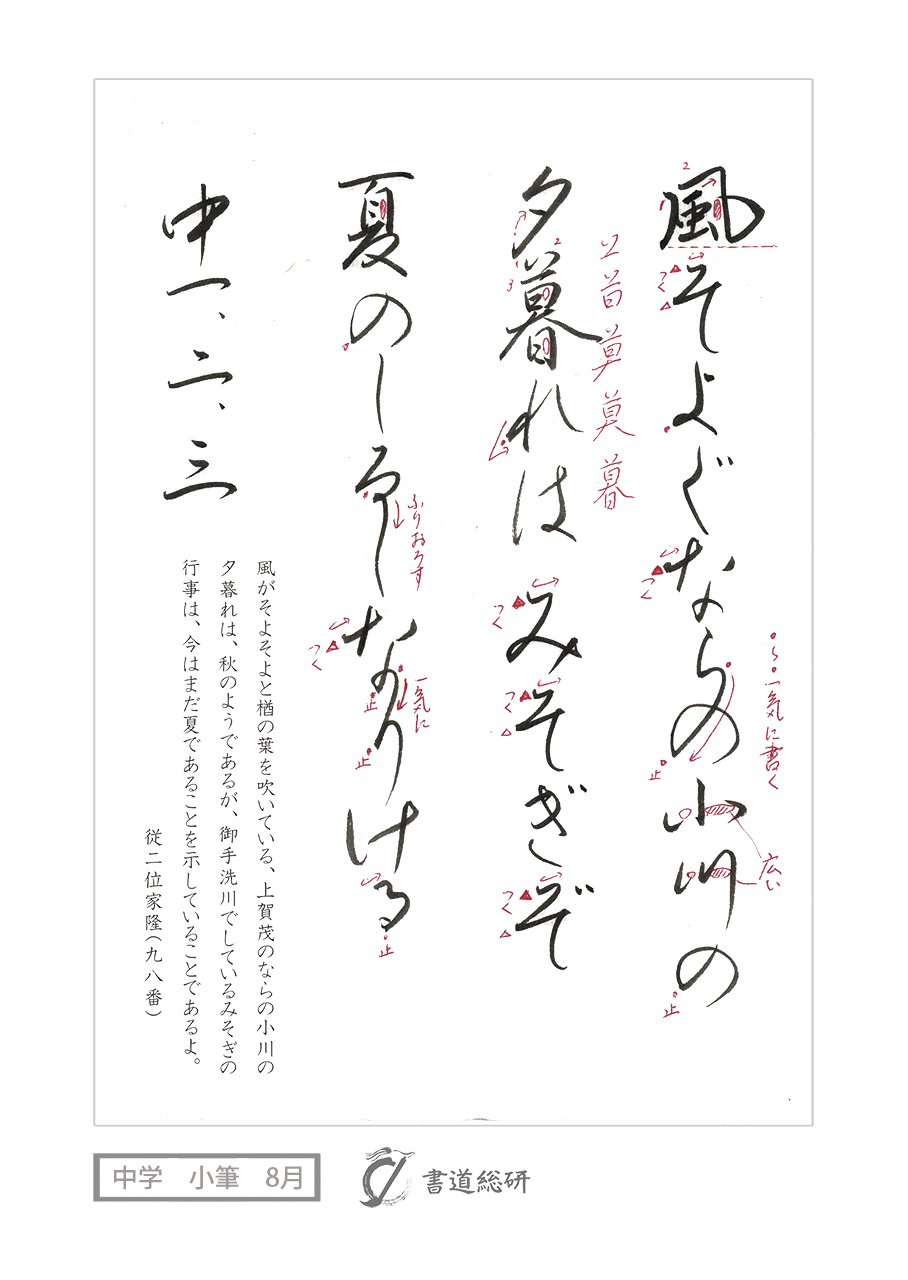 風そよぐならの小川の
夕暮れは みそぎぞ
夏のしるしなりける
中一、二、三
2
1
つく
つく
ら
一気に書く
止
広い
止
2
1
3
つく
つく
つく
ふりおろす
つく
一気に
止
止
止
風がそよそよと楢の葉を吹いている、上賀茂のならの小川の
夕暮れは、秋のようであるが、御手洗川でしているみそぎの
行事は、今はまだ夏であることを示していることであるよ。
従二位家隆(九八番)
中学 小筆 8月
書道総研